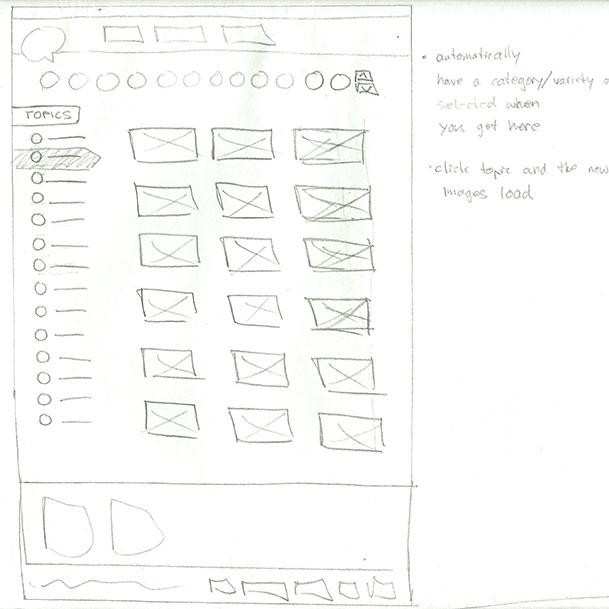 TOPICS
• automatically
have a category/variety
selected when
you get here
• click topic and the new
images load